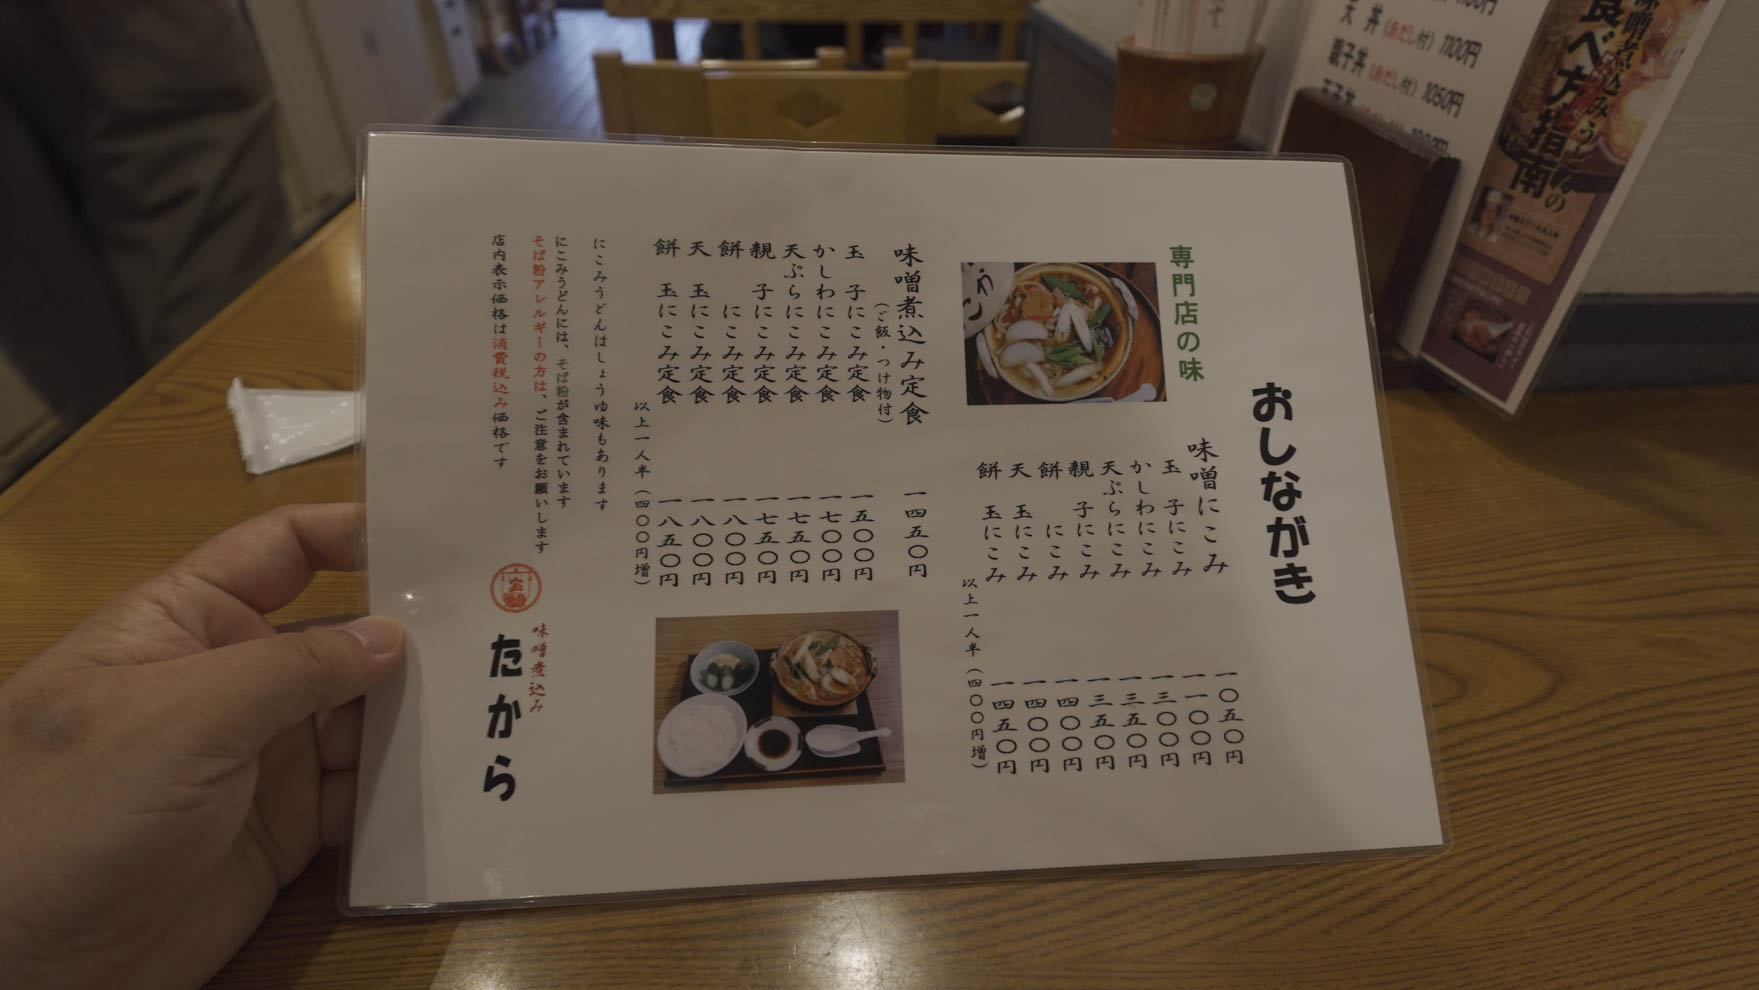 おしながき
専門店の味
味噌にこみ 一〇五〇円
玉子にこみ 一一〇〇円
かしわにこみ 一三〇〇円
天ぷらにこみ 一三五〇円
親子にこみ 一三五〇円
餅にこみ 一四〇〇円
天玉にこみ 一四〇〇円
餅玉にこみ 一四五〇円
以上一人半(四〇〇円増)
味噌煮込み定食 一四五〇円
(ご飯・つけ物付)
玉子にこみ定食 一五〇〇円
かしわにこみ定食 一七〇〇円
天ぷらにこみ定食 一七五〇円
親子にこみ定食 一七五〇円
餅にこみ定食 一八〇〇円
天玉にこみ定食 一八〇〇円
餅玉にこみ定食 一八五〇円
以上一人半(四〇〇円増)
にこみうどんはしょうゆ味もあります
にこみうどんには、そば粉が含まれています
そば粉アレルギーの方は、ご注意をお願いします
店内表示価格は消費税込み価格です
味噌煮込み
たから
天丼(赤だし付)1100円
親子丼(赤だし付)1050円
味噌煮込みうどんの
食べ方指南